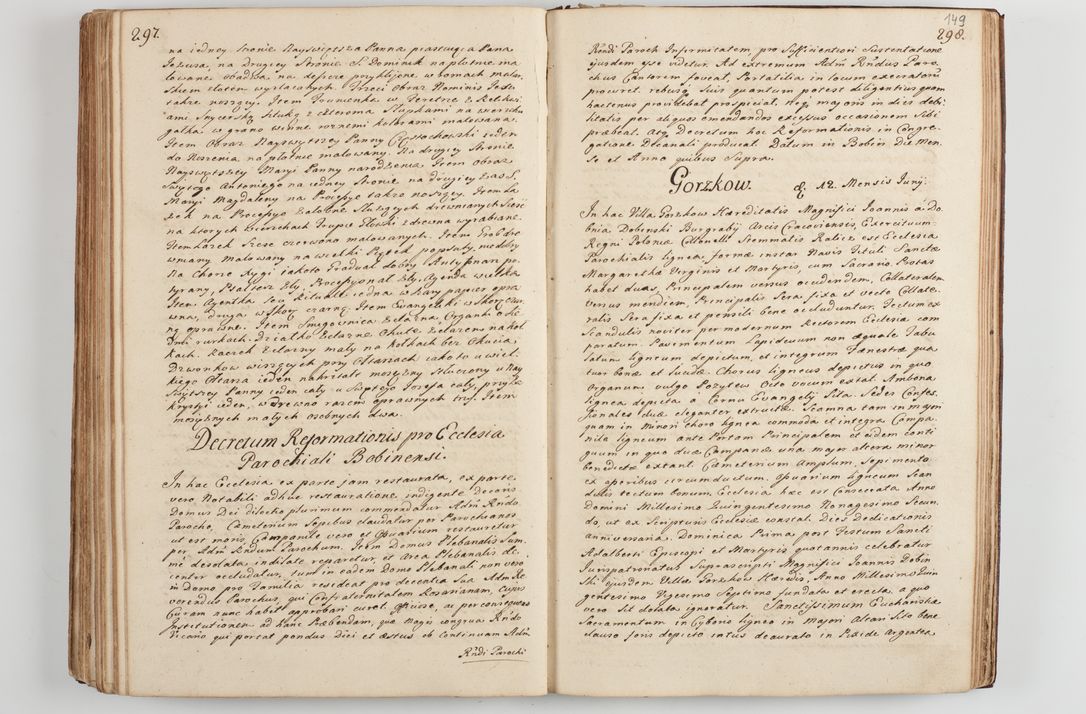 297.
na iedney stronie Nayswiętsza Panna piastuiąca Pana
Jezusa, na drugiey stronie S. Dominik na płutnie ma
lowane obadwa, na desce przyklijone w ramach malar
skiem złotem wyzłacanych. Trzeci obraz Nominis Jesu
także noszący. Item Trumienka w Feretne z Relikwi
ami Snycerską Sztuką z czterema Słupkami na wierzchu
gałka w grano winne roznemi kolorami malowana.
Item Obraz Nayswiętszey Panny Częstochowski ieden
do Noszenia na płutnie malowany. Na drugiey stronie
Nayswiętszey Maryi Panny narodzenia. Item Obraz
Swiętego Antoniego na iedney stronie na drugiey zas S.
Maryi Magdaleny na Procesye także noszący. Item La
sek na Procesye żałobne służących drewnianych Sześć
na ktorych wierzchach Trupie Głowki z drewna wyrabiane.
Item Lasek Szesc czerwono malowanych. Item Grob dre
wniany malowany na wielki Piątek popsuty, niedobry
Na Chorze Xięgi iakoto Graduał dobry Antyfonarz po
tyrany, Psałterz zły, Processyonał zły, Agenda wielka
Item Agentka seu Rituale iedna w szary papier opra
wna, druga w skorę czarną. Item Ewangeliki w skorę czar
ną oprawne. Item Smigownica żelazna. Organki o sie
dmi rurkach. Działko żelazne
kach. Raczek żelazny mały na kołkach bez Okucia.
Dzwonkow wiszących przy Ołtarzach iako to u wiel
kiego Ołtarza ieden nakształt mosiężny stłuczony u Nay
Swiętszey Panny ieden cały u Swiętego Jozefa cały, przy Za
krystyi ieden, w Drewno razem oprawnych trzy. Item
mosiężnych małych osobnych dwa.
Decretum Reformationis pro Ecclesia
Parochiali Bobinensi.
In hac Ecclesia ex parte jam restaurata, ex parte
vero Notabili adhuc restauratione indigente Decoris
Domus Dei dilecto plurimum commendatur Adm Rndo
Parocho, Cæmeterium Sepibus claudatur per Parochianos
ut est moris, Campanile vero et Ossarium restauretur
per Adm Rndum Parochum. Item Domus Plebanalis Sum
me desolata indilate reparetur, et Area Plebanalis de
center occludatur, tum in eadem Domo Plebanali non vero
in Domo pro Familia resideat pro decentia Sua Adm Re
verendus Parochus, qui Confraternitatem Rosarianam, cujus
Curam nunc habet approbari curet Officiose, ac per consequens
Institutionem ad hanc Præbendam, qua Magis congrua Rndo
Vicario qui portat pondus Diei et æstus ob Continuam Adm
Rndi Parochi

149
298.
Rndi Paroch Infirmitatem, pro Sufficientiori Sustentatione
ejusdem esse videtur. Ad extremum Adm Rndus Paro
chus Cantorem foveat, Portatilia in locum execratorum
procuret, rebusq suis quantum potest diligentius quam
hactenus providebat prospiciat, neq majoris in dies debi
litatis per aliquos emendandos excessus occasionem Sibi
præbeat. Atq Decretum hoc Reformationis in Congre
gatione Decanali producat. Datum in Bobin Die Men
se et Anno quibus Supra.
Gorzkow. 12. Mensis Junij.
In hac Villa Gorzkow Hæreditatis Magnifici Joannis a Do
bnia Dobinski Burgrabij Arcis Cracoviensis, Exercituum
Regni Poloniæ Collonelli Stemmatis Ralicz est Ecclesia
Parochialis lignea, formæ instar Navis Tituli Sanctæ
Margarethæ Virginis et Martyris, cum Sacrario. Portas
habet duas, Principalem versus occidendem, Collateralem
versus meridiem, Principalis Sera fixa et vecte Collate
ralis Sera fixa et pensili bene occluduntur. Tectum ex
Scandulis noviter per modernum Rectorem Ecclesiæ com
paratum. Pavimentum Lapideum non æquale. Tabu
latum ligneum depictum, et integrum Fenestræ qua
tuor bonæ et lucidæ. Chorus ligneus depictus in quo
Organum vulgo Pozytew Octo vocum extat. Ambona
lignea depicta a Cornu Evangelij Sita. Sedes Confes
sionales duæ eleganter extructæ. Scamna tam in majori
quam in Minori choro lignea commoda et integra Campa
nile ligneum ante Portam Principalem et eidem conti
guum in quo duæ Campanæ una major altera minor
benedictæ extant. Cæmeterium Amplum, Sepimento
ex asseribus circumductum. Ossarium ligneum Scan
dulis tectum bonum. Ecclesia hæc est Consecrata Anno
Domini Millesimo Quingentesimo Nonagesimo Secun
do, ut ex Scripturis Ecclesiæ constat. Dies Dedicationis
anniversaria. Dominica Prima post Festum Sancti
Adalberti Episcopi et Martyris quotannis celebratur
Jurispatronatus Suprascripti Magnifici Joannis Dobin
Ski ejusdem Villæ Gorzkow Hæredis, Anno Millesimo Quin
gentesimo Vigesimo Septimo fundata et erecta, a quo
vero sit dotata ignoratur. Sanctissimum Eucharistiæ
Sacramentum in Cyborio ligneo in Majori Altari sito bene
clauso foris depicto intus deaurato in Pixide Argentea,